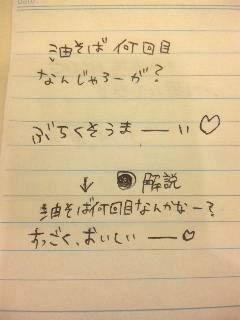 油そば 何回目
なんじゃろーが?
ぶちくそうまーい♡
↓ 解説
油そば何回目なんかなー?
すっごく、おいしいー♡